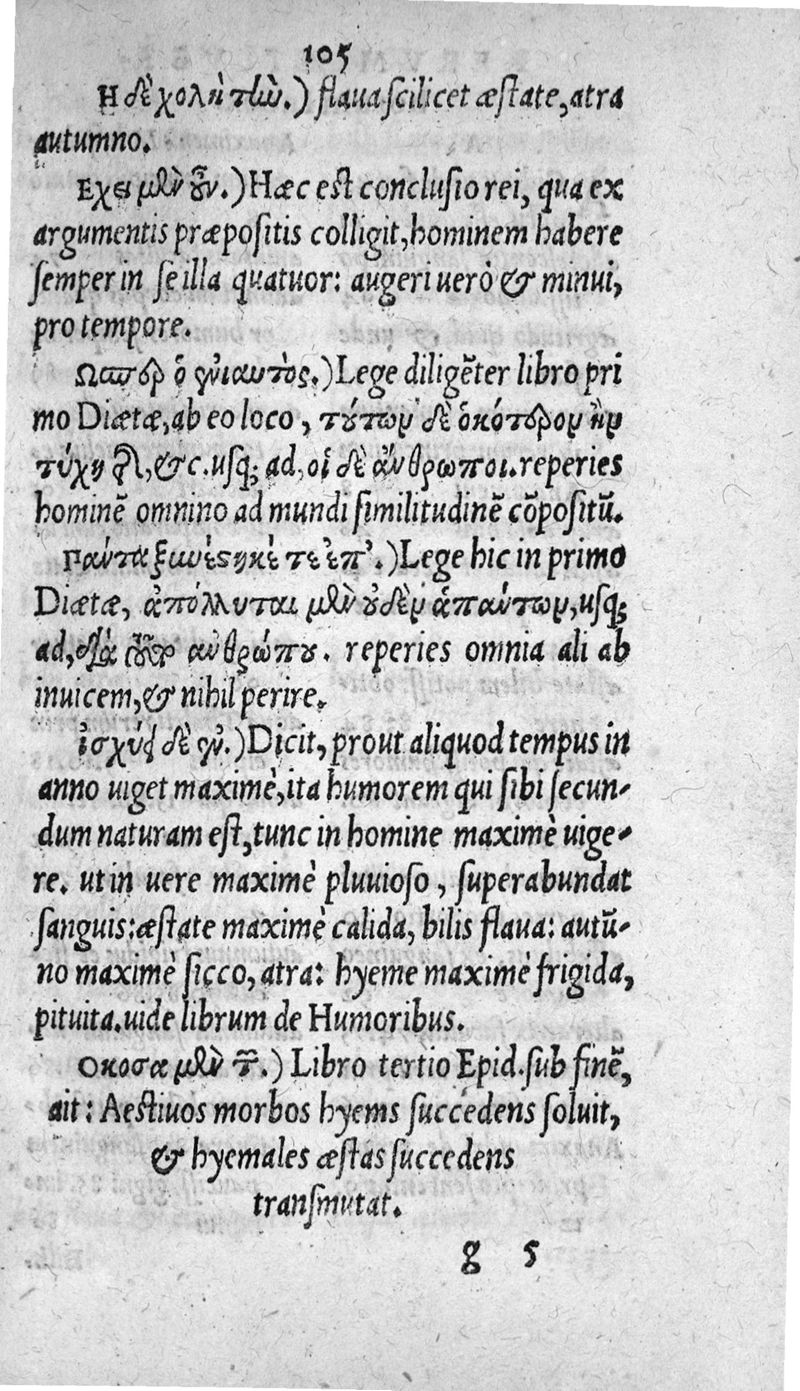 105
Η δὲ χολὴ τὴν.) flaua scilicet æstate, atra
autumno.
Εχει μὲν οὖν.) Hæc est conclusio rei, qua ex
argumentis præpositis colligit, hominem habere
semper in se illa quatuor: augeri uerò & minui,
pro tempore.
Ωσπερ ὁ ἐνιαυτὸς.) Lege diligēter libro pri
mo Diætæ, ab eo loco, τούτων δὲ ὁκότερον ἢν
τύχῃ &c. usq; ad, οἱ δὲ ἄνθρωποι. reperies
hominē omnino ad mundi similitudinē cōpositū.
Lege hic in primo
Diætæ, ἀπόλλυται μὲν οὐδὲν ἁπάντων, usq;
ad, ἀνθρώπου. reperies omnia ali ab
inuicem, & nihil perire.
ἰσχύει δὲ ἐν.) Dicit, prout aliquod tempus in
anno uiget maximè, ita humorem qui sibi secun-
dum naturam est, tunc in homine maximè uige-
re. ut in uere maximè pluuioso, superabundat
sanguis: æstate maximè calida, bilis flaua: autū-
no maximè sicco, atra: hyeme maximè frigida,
pituita. uide librum de Humoribus.
Οκοσα μὲν) Libro tertio Epid. sub finē,
ait: Aestiuos morbos hyems succedens soluit,
& hyemales æstas succedens
transmutat.
g 5